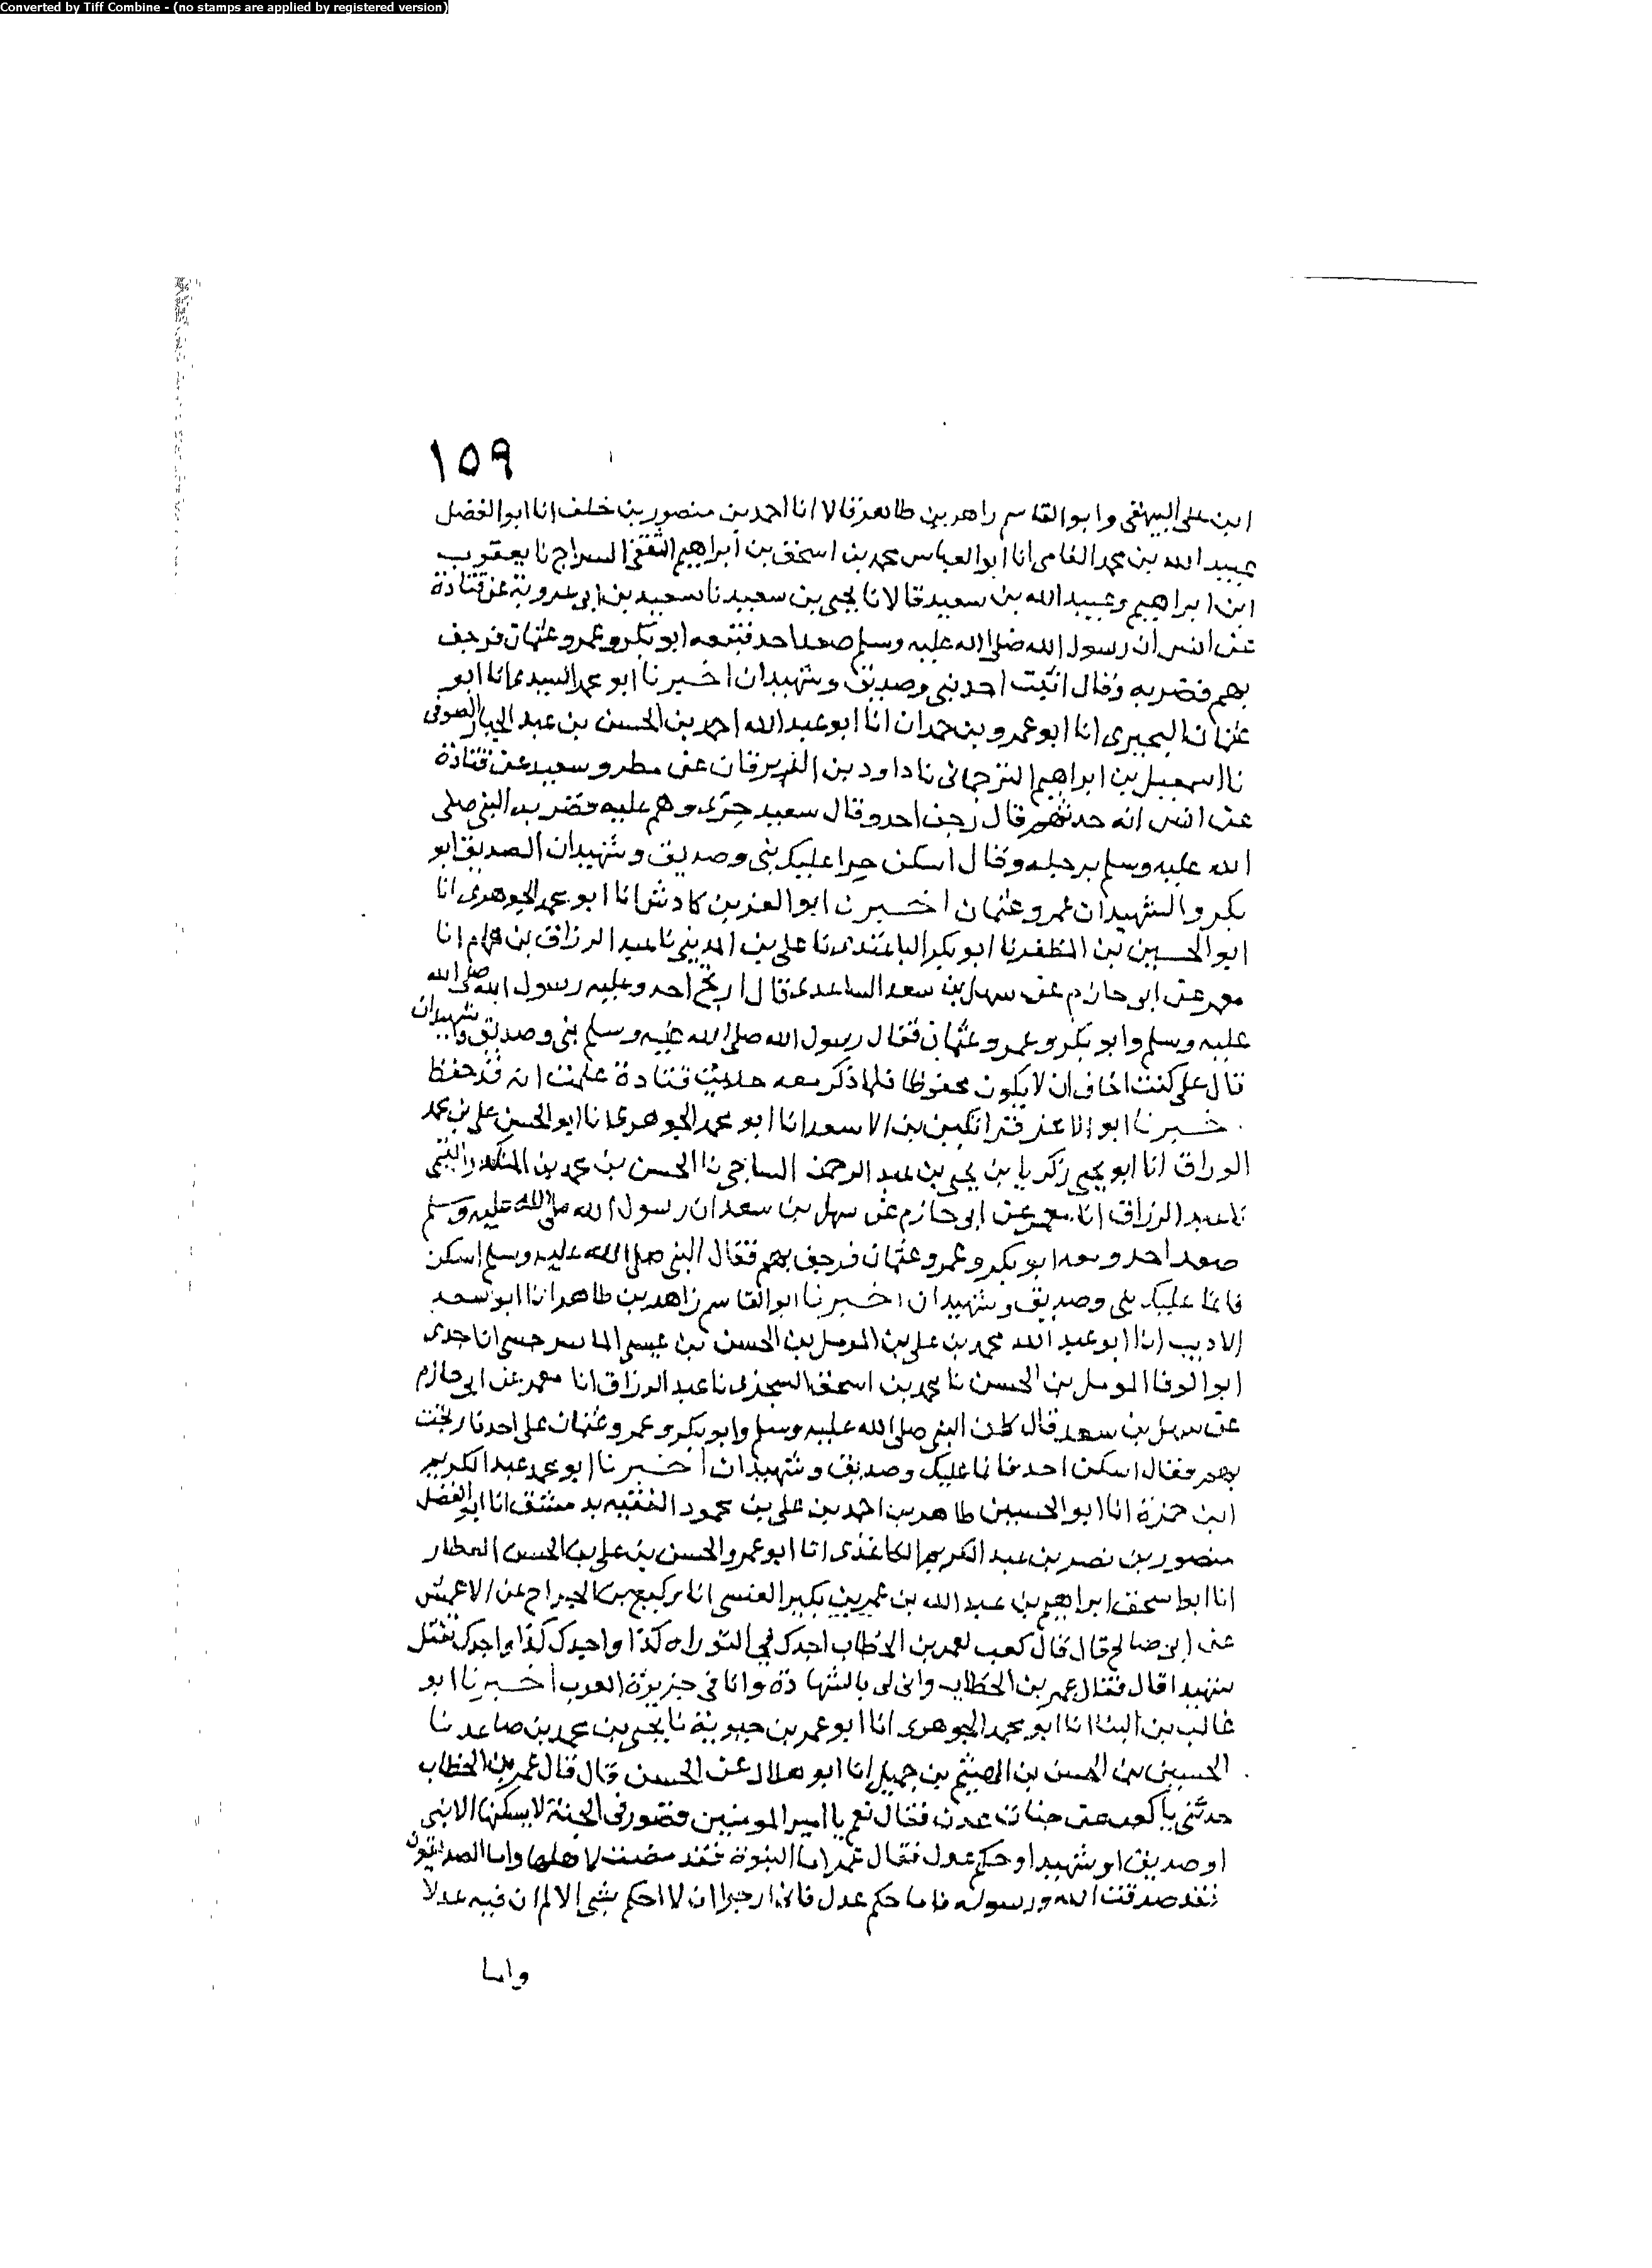 Converted by Tiff Combine - (no stamps are applied by registered version)
١٥٩
ابن على البيهقى وابو القاسم زاهر بن طاهر قالا انا احمد بن منصور بن خلف انا ابو الفضل
عبيد الله بن محمد الفامى انا ابو العباس محمد بن اسحق بن ابراهيم الثقفى السراج نا يعقوب
ابن ابراهيم وعبيد الله بن سعيد قالا نا يحيى بن سعيد نا سعيد بن ابى عروبة عن قتادة
عن انس ان رسول الله صلى الله عليه وسلم صعد احد فتبعه ابو بكر وعمر وعثمان فرجف
بهم فضربه وقال اثبت احد نبى وصديق وشهيدان اخبرنا ابو محمد السيدى انا ابو
عثمان البحيرى انا ابو عمرو بن حمدان انا ابو عبد الله احمد بن الحسن بن عبد الجبار الصوفى
نا اسمعيل بن ابراهيم الترجمانى نا داود بن الزبرقان عن مطر وسعيد عن قتادة
عن انس انه حدثهم قال رجف احد وقال سعيد حرى وهم عليه فضربه النبى صلى
الله عليه وسلم برجله وقال اسكن حرا عليك نبى وصديق وشهيدان الصديق ابو
بكر والشهيدان عمر وعثمان اخبرنا ابو العز بن كادش انا ابو محمد الجوهرى انا
ابو الحسين بن المظفر نا ابو بكر الباغندى نا على بن المدينى نا عبد الرزاق بن همام انا
معمر عن ابى حازم عن سهل بن سعد الساعدى قال ارتج احد وعليه رسول الله صلى الله
عليه وسلم وابو بكر وعمر وعثمان فقال رسول الله صلى الله عليه وسلم نبى وصديق وشهيدان
قال على كنت اخاف ان لا يكون محفوظا فلما ذكر معه حديث قتادة علمت انه قد حفظ
خبرنا ابو الاعز قراتكين بن الاسعد انا ابو محمد الجوهرى انا ابو الحسن على بن محمد
الوراق انا ابو يحيى زكريا بن يحيى بن عبد الرحمن الساجى نا الحسن بن محمد بن المنكدر التيمى
نا عبد الرزاق انا معمر عن ابى حازم عن سهل بن سعد ان رسول الله صلى الله عليه وسلم
صعد احد ومعه ابو بكر وعمر وعثمان فرجف بهم فقال النبى صلى الله عليه وسلم اسكن
فانما عليك نبى وصديق وشهيدان اخبرنا ابو القاسم زاهد بن طاهر انا ابو سعد
الاديب انا ابو عبد الله محمد بن على بن المومل بن الحسن بن عيسى الماسرجسى انا جدى
ابو الوفا المومل بن الحسن نا محمد بن اسحق السجزى نا عبد الرزاق انا معمر عن ابى حازم
عن سهل بن سعد قال كان النبى صلى الله عليه وسلم وابو بكر وعمر وعثمان على احد فارتجت
بهم فقال اسكن احد فانما عليك وصديق وشهيدان اخبرنا ابو محمد عبد الكريم
ابن حمزة انا ابو الحسين طاهر بن احمد بن على بن محمود الفقيه بدمشق انا ابو الفضل
منصور بن نصر بن عبد الكريم الكاغذى انا ابو عمرو الحسن بن على بن الحسن العطار
انا ابو اسحق ابراهيم بن عبد الله بن عمر بن بكير العبسى انا وكيع بن الجراح عن الاعمش
عن ابى صالح قال قال كعب لعمر بن الخطاب اجدك فى التوراه كذا واجدك كذا واجدك تقتل
شهيدا قال فقال عمر بن الخطاب وانى لى بالشهادة وانا فى جزيرة العرب اخبرنا ابو
غالب بن البنا انا ابو محمد الجوهرى انا ابو عمر بن حيوية نا يحيى بن محمد بن صاعد نا
الحسين بن الحسن بن الهيثم بن جميل انا ابو هلال عن الحسن قال قال عمر بن الخطاب
حدثنى يا كعب عن جنات عدن فقال نعم يا امير المومنين قصور فى الجنة لا يسكنها الا نبى
او صديق او شهيد او حكم عدل فقال عمر اما النبوة فقد مضت لاهلها واما الصديقون
فقد صدقت الله ورسوله فاما حكم عدل فانى ارجوا ان لا احكم بشى الا لم ان فيه عدلا
واما